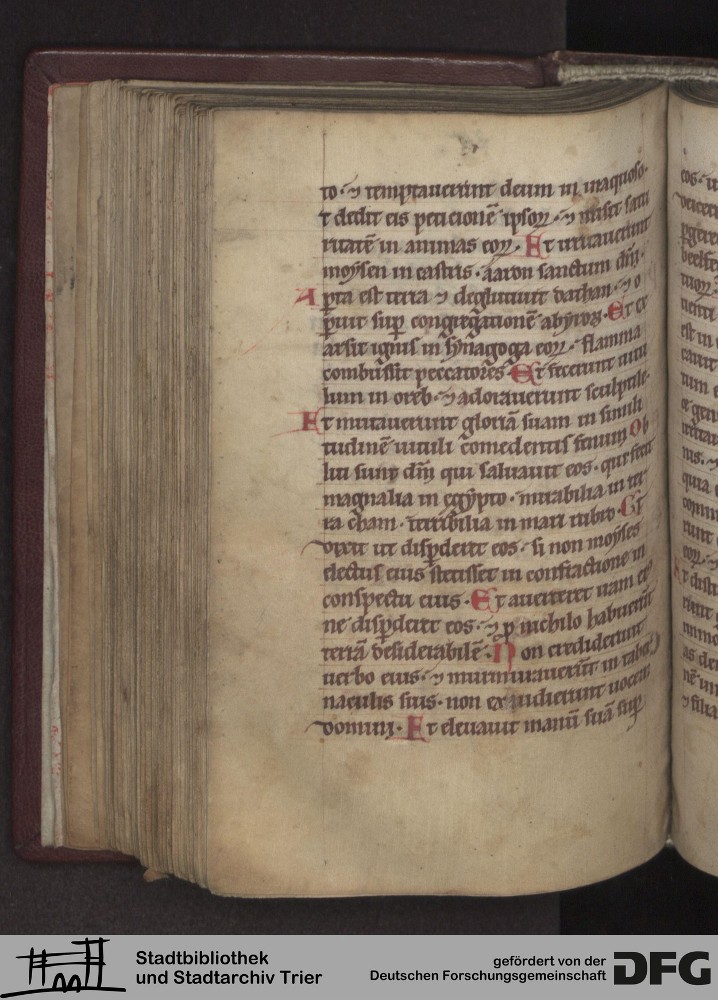 to · ⁊ temptauerunt deum in inaquoso ·
t dedit eis peticionē ipsoꝝ · ⁊ misit satu
ritatē in animas eoꝝ · Et irritauerunt
moẏsen in castris · aaron sanctum dn̄i ·
Aꝑta est terra ⁊ deglutiuit dathan · ⁊ o
ꝑuit suꝑ congregationē abyron · Et ex
arsit ignis in sẏnagoga eoꝝ · flamma
combussit peccatores · Et fecerunt uitu
lum in oreb · ⁊ adorauerunt sculptile ·
Et mutauerunt gloriā suam in simili
tudinē uituli comedentis fenum Ob
liti sunt dm̄ qui saluauit eos · qui fecit
magnalia in egẏpto · mirabilia in ter
ra cham · terribilia in mari rubro · Et
dixit ut disꝑderet eos · si non moẏses
electus eius stetisset in confractione in
conspectu eius · Et auerteret iram ei
ne disꝑderet eos · ⁊ ꝓ nichilo habuerūt
terrā desiderabilē · Non crediderunt
uerbo eius · ⁊ murmurauerūt in taber
naculis suis · non exaudierunt uocem
domini · Et eleuauit manū suā suꝑ
Stadtbibliothek
und Stadtarchiv Trier
gefördert von der
Deutschen Forschungsgemeinschaft
DFG